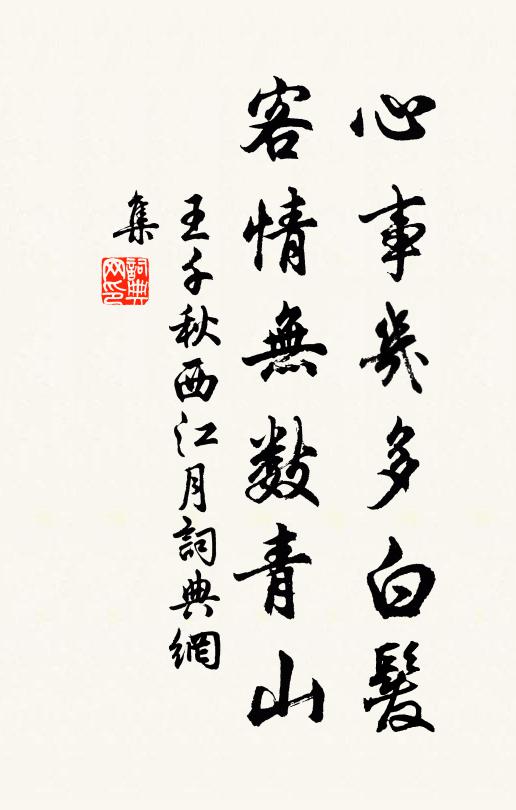 心事幾多白髮
客情無數青山
王千秋西江月詞典網
集
詞典
网印